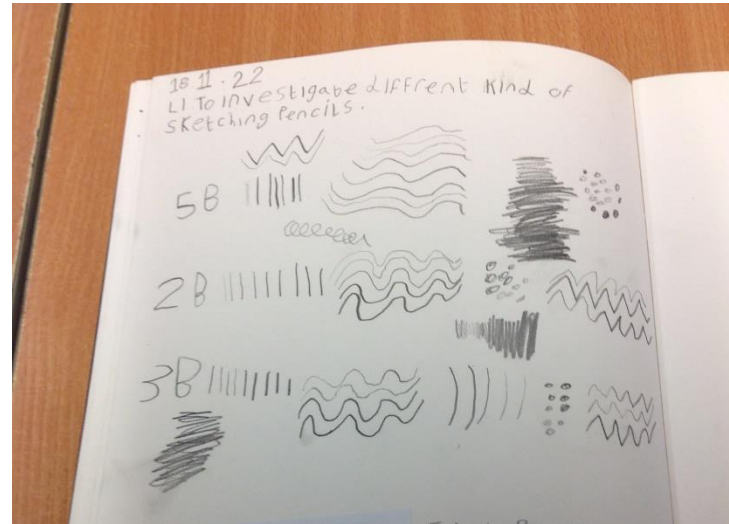 18.11.22
LI To investigate diffrent kind of
sketching Pencils.
5B
2B
3B